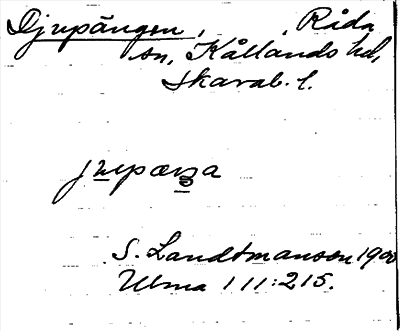 Djupängen, , Råda
sn, Kållands hd,
Skarab. l.
S. Landtmanson 1900
Ulma 111:215.